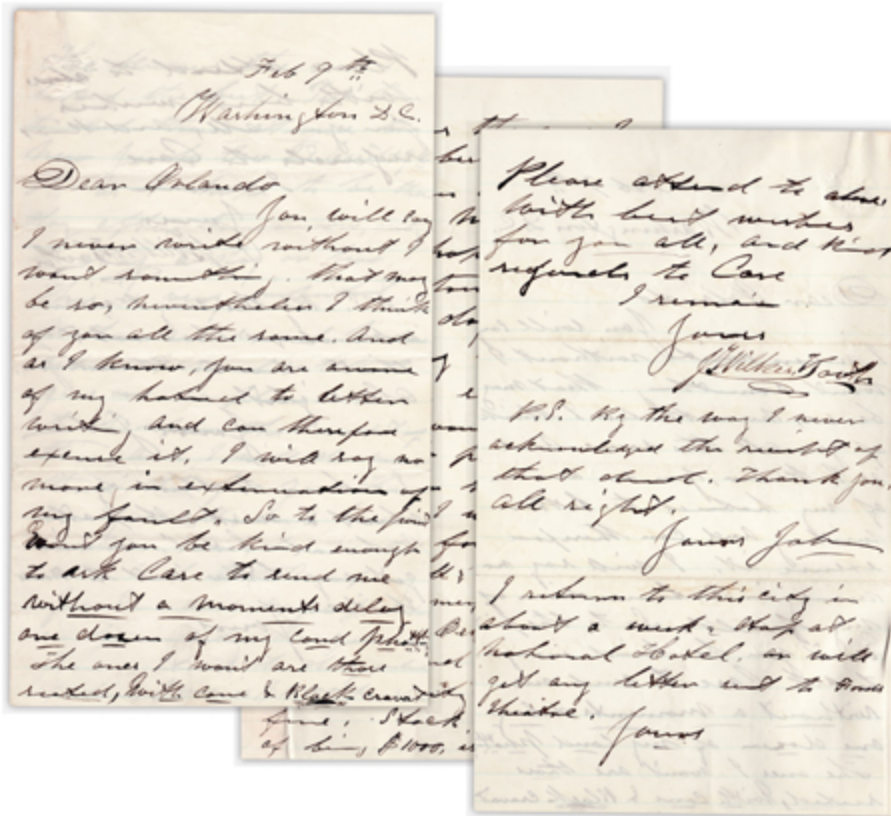 Feb 9th
Washington D.C.
Dear Orlando
You will say
I never write without I
want somethin. that may
be so, nevertheless I think
of you all the same. And
as I know, you are aware
of my hatred to letter
writing, and can therefore
excuse it. I will say no
more in extenuation of
my fault. So to the point
Wont you be kind enough
to ask Case to send me
without a moments delay
one dozen of my card phothes
The ones I want are those
seated, with cane & black cravat
fine. Stock
of bin, $1000, i
Please attend to above
With best wishes
for you all, and kind
regards to Case
I remain
Yours
J. Wilkes Booth
P.S. By the way I never
acknowledged the receipt of
that deed. Thank you,
all right.
Yours John
I return to this city in
about a week. Stop at
National Hotel. or will
get any letter sent to Fords
Theatre.
Yours